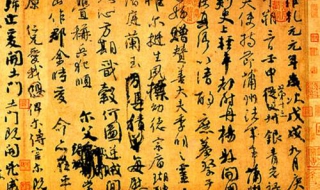 乾元元年歲次戊戌九月庚
朔三日壬申第十三叔銀青光祿
夫使持節蒲州諸軍事蒲州
刺史上輕車都尉丹楊縣開國
侯真卿以清酌庶羞祭
贈贊善大夫季明
惟爾挺生夙標幼德宗廟瑚
階庭蘭玉每慰
心方期戩穀何圖逆賊間
稱兵犯順
爾父
山作郡余時受命亦在平
原仁兄愛我俾爾傳言爾既
歸止爰開土門土門既開凶威